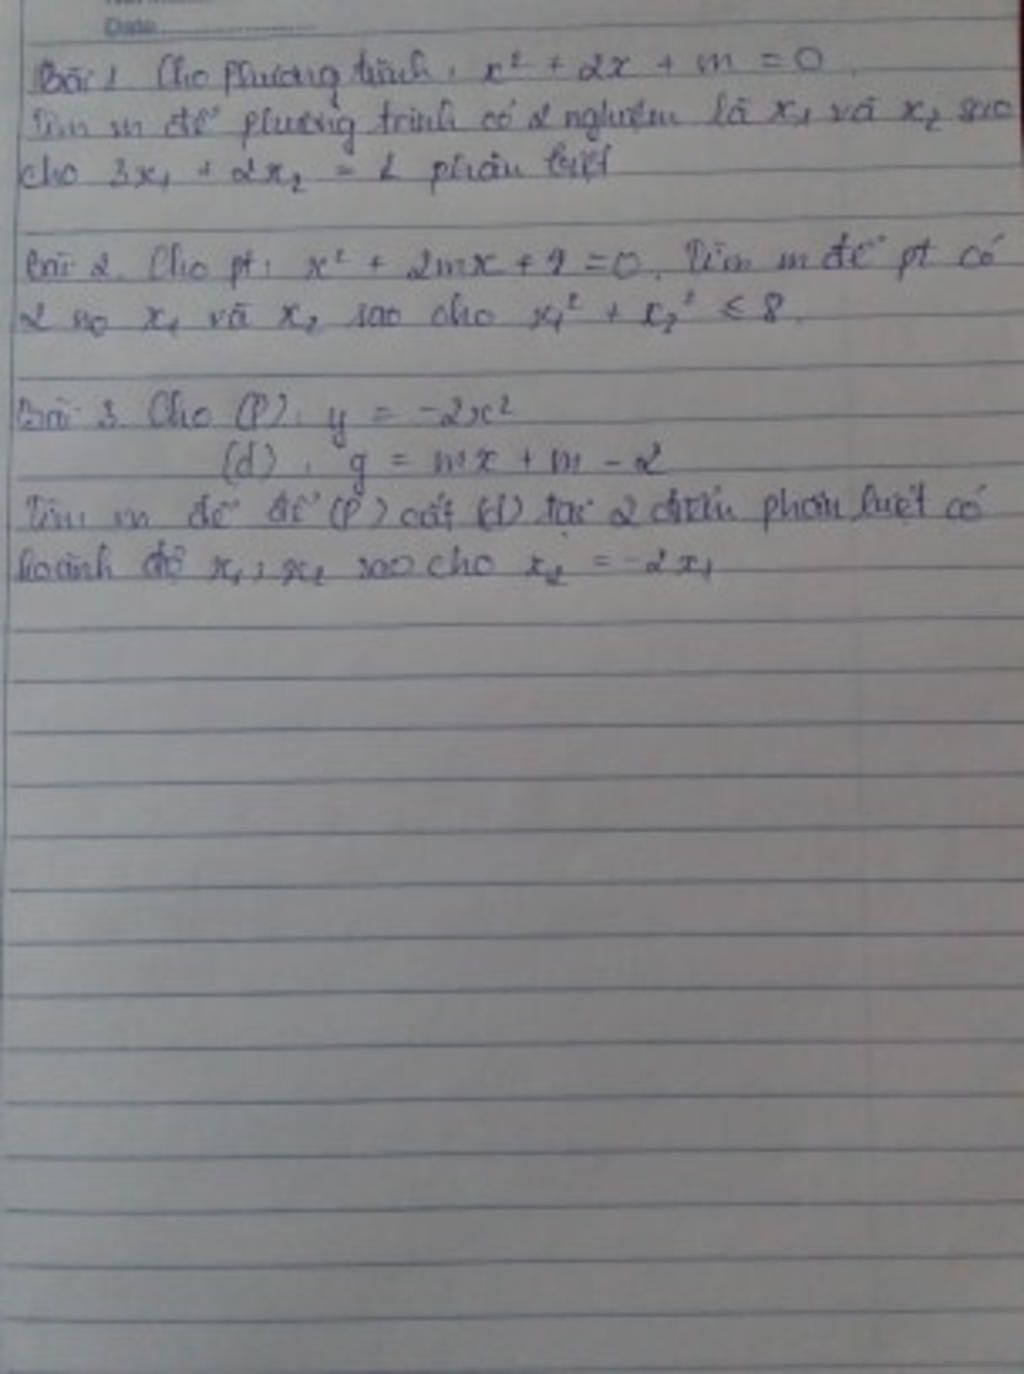 Date
Bài 1 Cho phương trình: x² + 2x + m = 0.
Tìm m để phương trình có 2 nghiệm là x₁ và x₂ sao
cho 3x₁ + 2x₂ = 1 phân biệt
Bài 2. Cho pt: x² + 2mx + 9 = 0. Tìm m để pt có
2 no x₁ và x₂ sao cho x₁² + x₂² ≤ 8.
Bài 3. Cho (P): y = -2x²
(d): y = mx + m - 2
Tìm m để để (P) cắt (d) tại 2 điểm phân biệt có
hoành độ x₁; x₂ sao cho x₂ = -2x₁